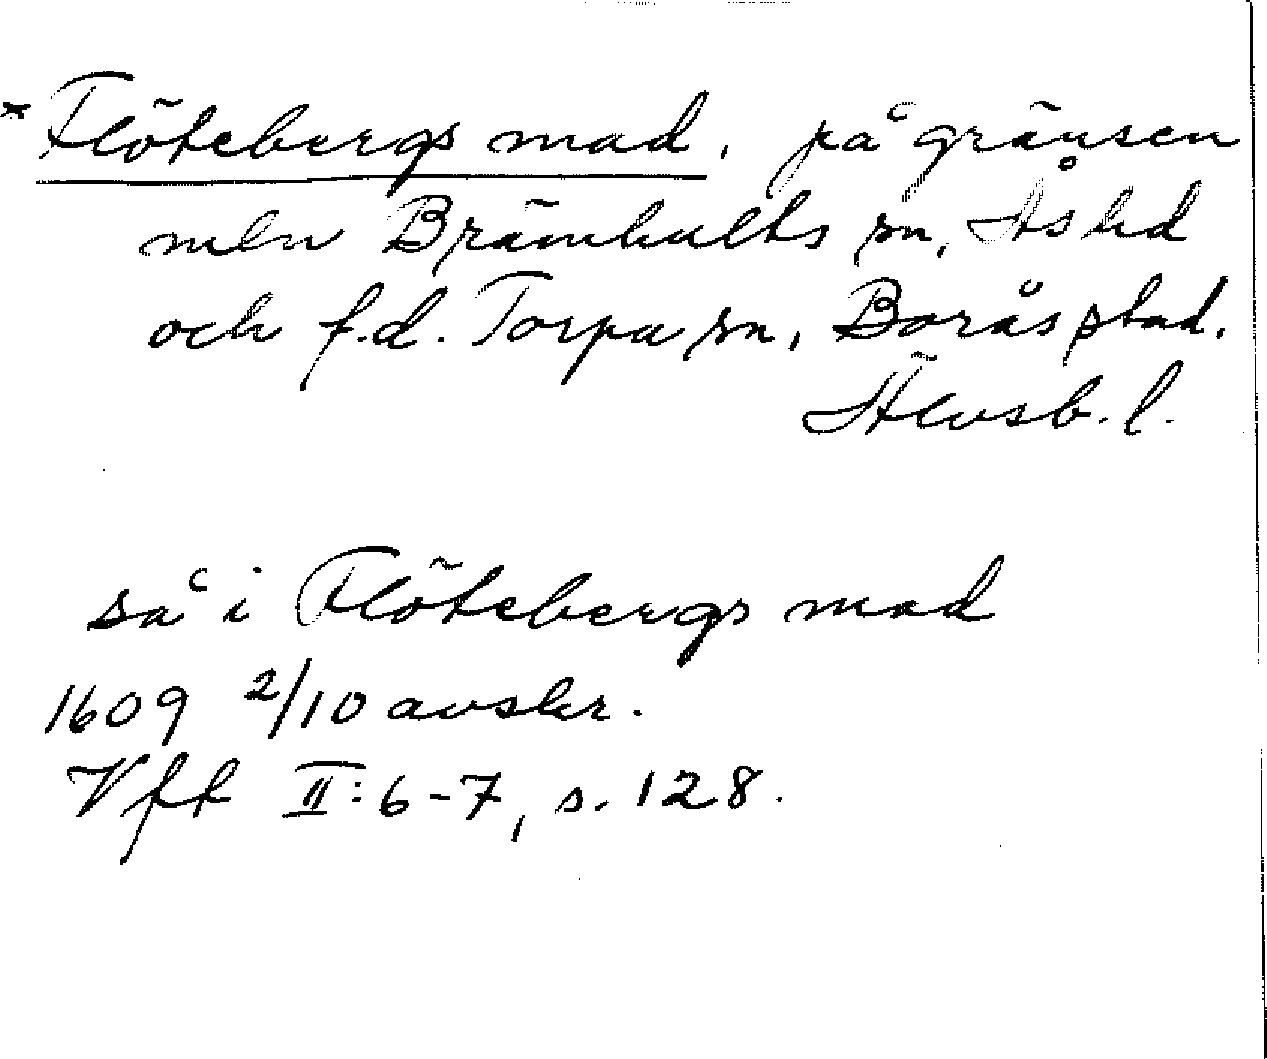 * Flötebergs mad, på gränsen
mln Brämhults sn, Ås hd
och f.d. Torpa sn, Borås stad.
Älvsb. l.
så i Flötebergs mad
1609 2/10 avskr.
Vff II:6-7, s. 128.